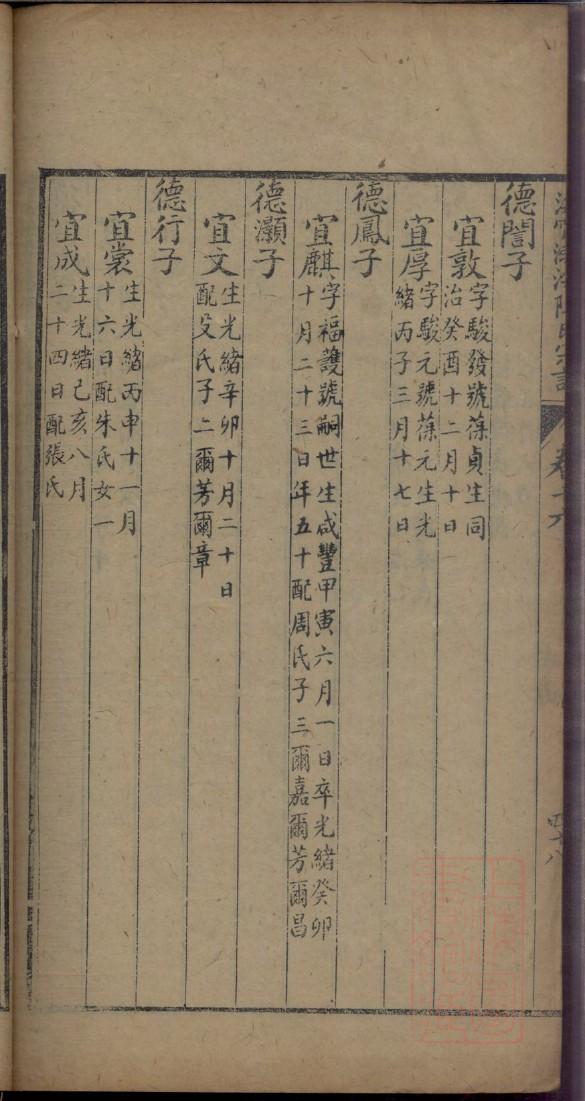 陳氏宗譜
卷十六
四十八
德誾子
宜敦 字駿發號葆貞生同
治癸酉十二月十日
宜厚 字駿元號葆元生光
緒丙子三月十七日
德鳳子
宜麒 字福護號嗣世生咸豐甲寅六月一日卒光緒癸卯
十月二十三日年五十配周氏子三爾嘉爾芳爾昌
德灝子
宜文 生光緒辛卯十月二十日
配殳氏子二爾芳爾章
德行子
宜裳 生光緒丙申十一月
十六日配朱氏女一
宜成 生光緒己亥八月
二十四日配張氏